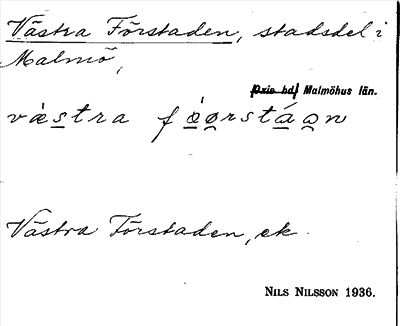 Västra Förstaden, stadsdel i
Malmö,
Oxie hd/ Malmöhus län.
Västra Förstaden, ek.
NILS NILSSON 1936.